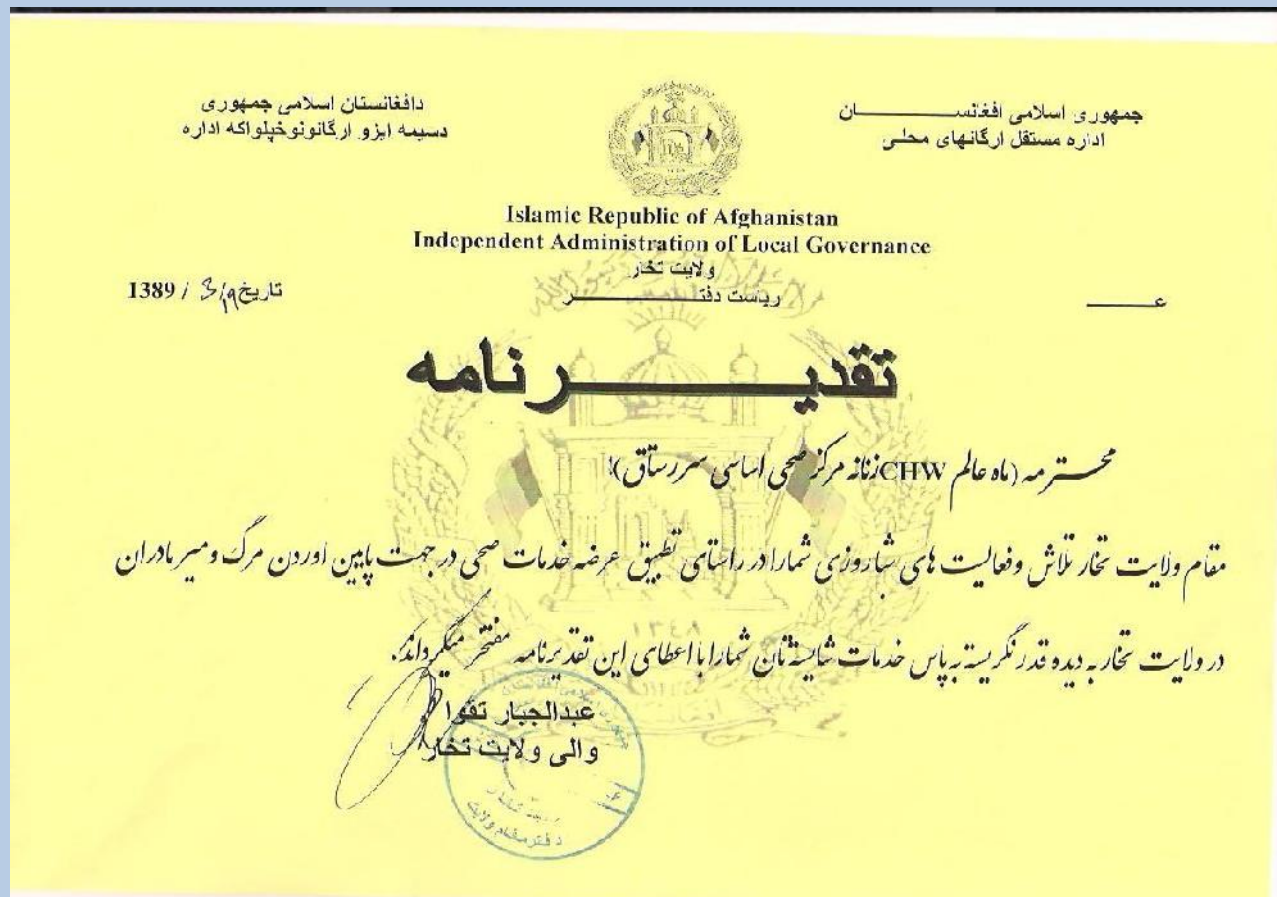 جمهوری اسلامی افغانســـــــــان
اداره مستقل ارگانهای محلی
دافغانستان اسلامی جمهوری
دسیمه ایزو ارگانونوخپلواکه اداره
Islamic Republic of Afghanistan
Independent Administration of Local Governance
ولایت تخار
ریاست دفتــــــــــر
عــــــ
تاریخ 3/19 / 1389
تقدیـــــــــر نامه
محترمه (ماه عالم CHW زنانه مرکز صحی اساسی سررستاق)!
مقام ولایت تخار تلاش وفعالیت های شباروزی شمارا در راستای تطبیق عرضه خدمات صحی در جهت پایین اوردن مرگ ومیر مادران
در ولایت تخار به دیده قدر نگریسته به پاس خدمات شایسته تان شمارا با اعطای این تقدیرنامه مفتخر میگرداند.
عبدالجبار تقوا
والی ولایت تخار
دفتر مقام ولایت
۱۳۴۸